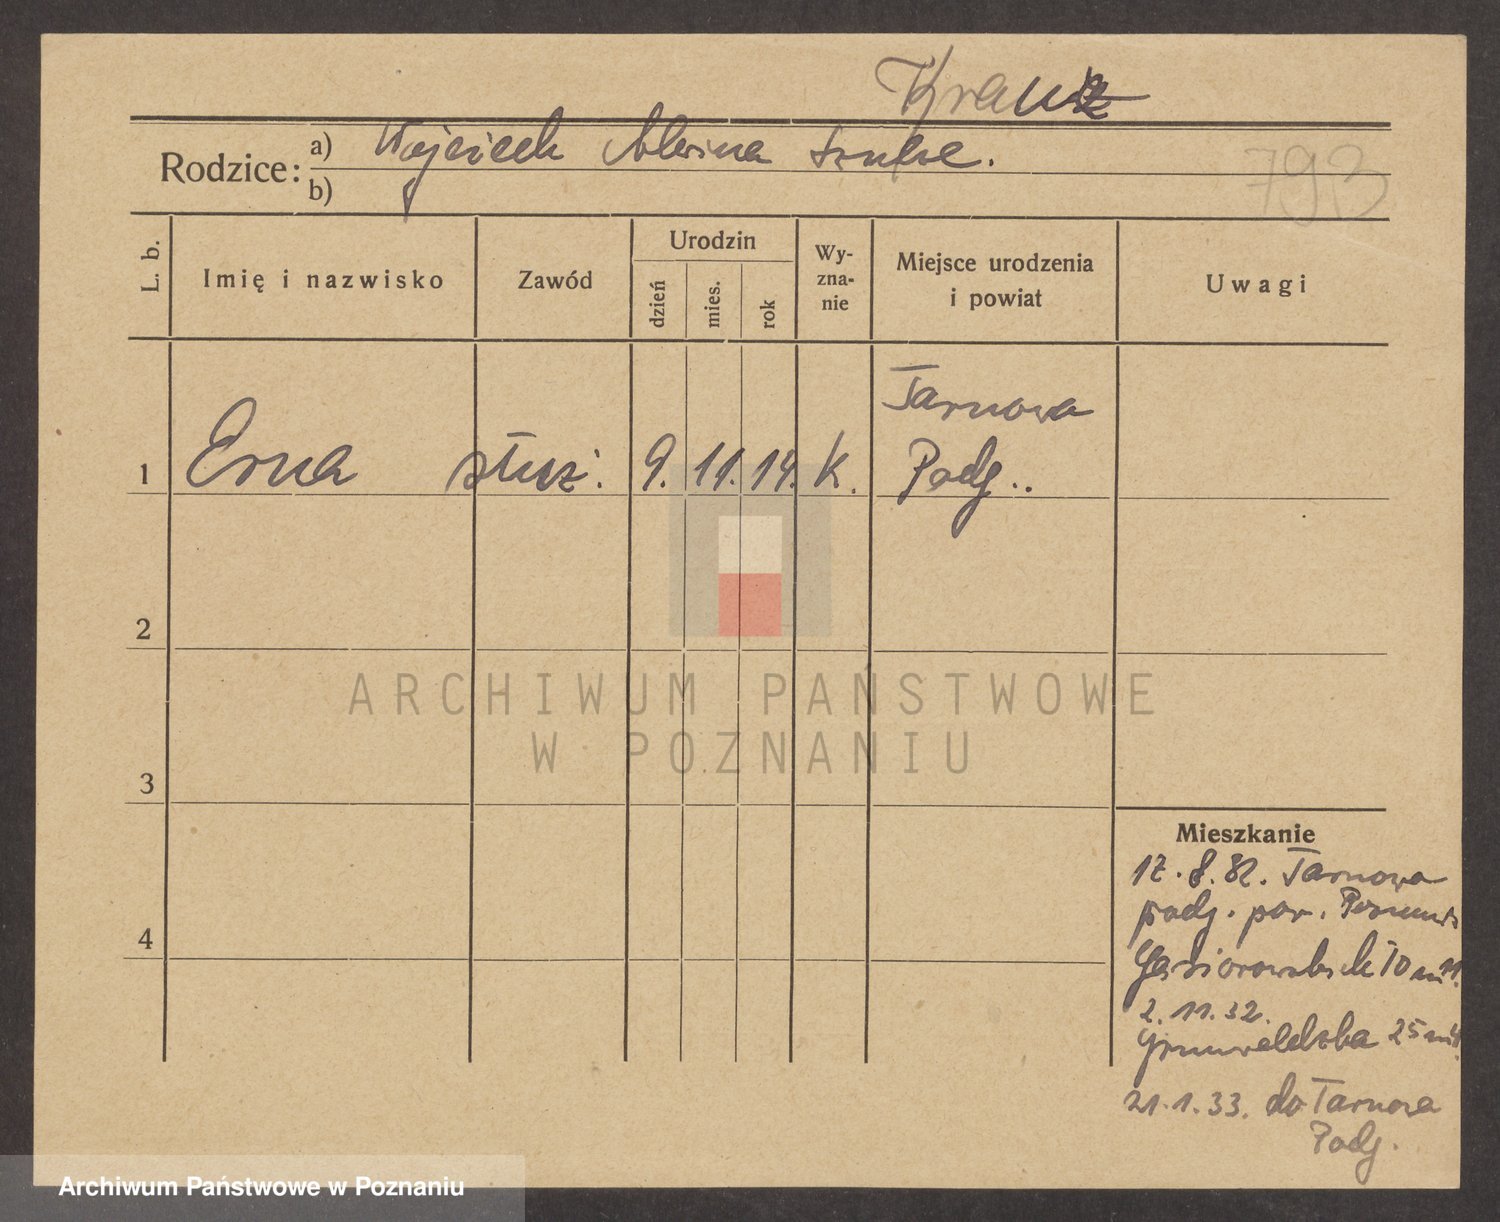 Krauz
Rodzice: a) Wojciech Alwina
b)
793
L. b.
Imię i nazwisko
Zawód
Urodzin
dzień
mies.
rok
Wy-
zna-
nie
Miejsce urodzenia
i powiat
Uwagi
1 Erna służ. 9. 11. 14. K. Tarnowa
Podg..
2
3
4
Mieszkanie
17. 8. 32. Tarnowa
podg. pow. Poznań
Gąsiorowskich 10 m 11.
2. 11. 32.
Grunwaldzka 25 m 4.
21. 1. 33. do Tarnowa
Podg.
ARCHIWUM PAŃSTWOWE
W POZNANIU
Archiwum Państwowe w Poznaniu